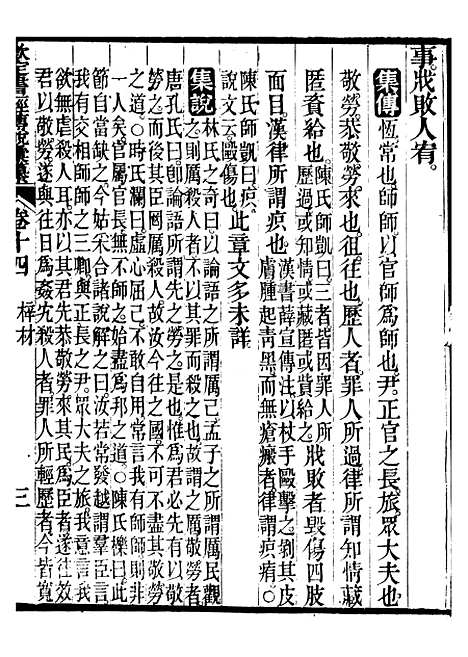 事戕敗人宥。
集傳 恆常也師師以官師為師也尹正官之長旅眾大夫也
敬勞恭敬勞來也徂往也歷人者罪人所過律所謂知情藏
匿資給也。陳氏師凱曰三者皆因罪人所歷過或知情或藏匿或資給之。戕敗者毀傷四肢
面目。漢律所謂疻也。漢書薛宣傳注以杖手毆擊之剝其皮膚腫起青黑而無瘡瘢者律謂疻痏。○
陳氏師凱曰疻說文云毆傷也。此章文多未詳
集說 林氏之奇曰以論語之所謂厲己孟子之所謂厲民觀
之則厲殺人者不以其罪而殺之也故謂之厲敬勞者
唐孔氏曰論語所謂先之勞之是也惟為君必先敬
勞之而後其臣罔厲殺人故汝今往之國不可不盡其敬勞
之道。○時氏瀾曰虛心屈己不敢自用常言我有師師則非
一人矣官屬官長無不師之始盡為邦之道○陳氏櫟曰此
節自當缺之今姑采合諸說解之曰汝若常發越謂羣臣言
我有交相師師之三卿與正長之尹眾大夫之旅我意言我
欲無虐殺人耳亦以其君先恭敬勞來其民為臣者遂往效
君以敬勞遂與往日為姦宄殺人者罪人所輕歷者今皆寬
欽定書經傳說彙纂 卷十四 梓材 三